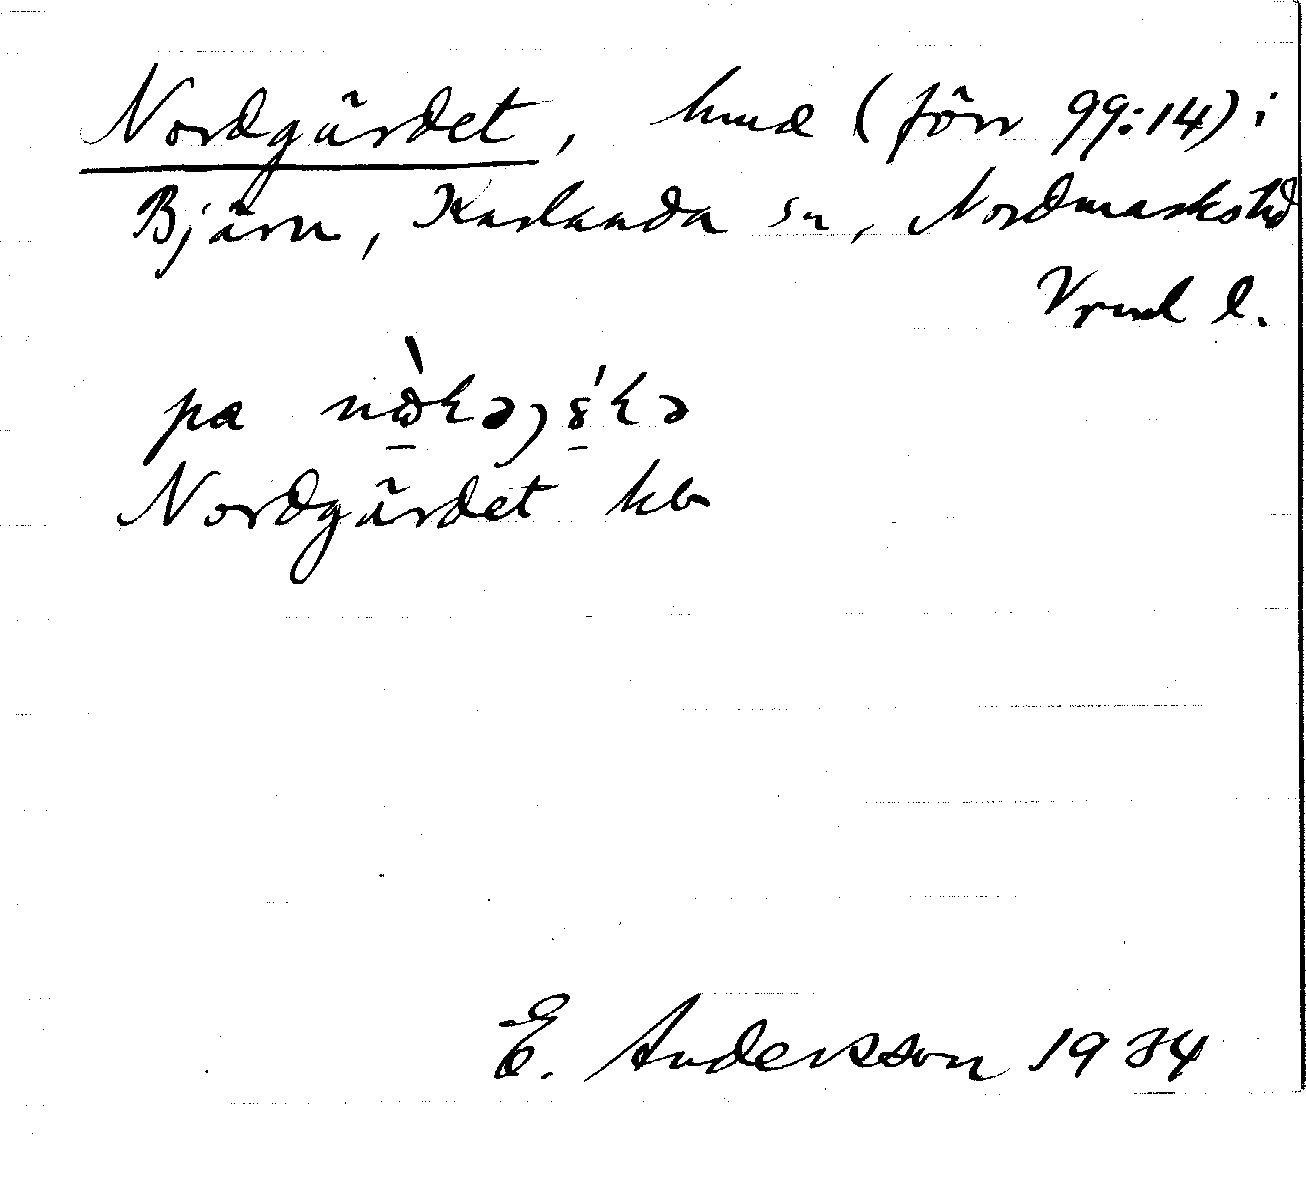 Nordgärdet, hmd (förr 99:14) i
Bjärn, Karlanda sn, Nordmarkshd
Vrml l.
pa
Nordgärdet kb
E. Andersson 1934